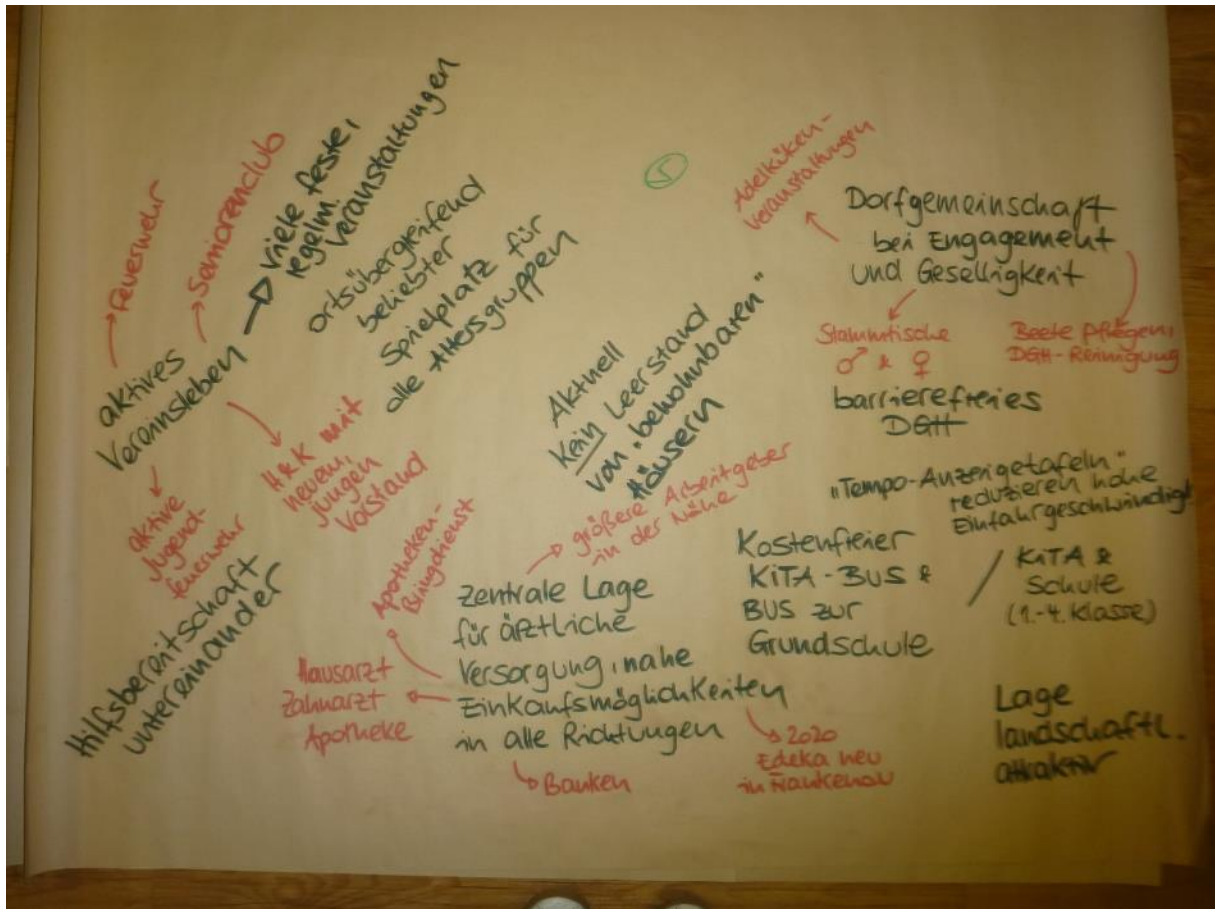 Feuerwehr
Seniorenclub
viele feste,
regelm.
Veranstaltungen
aktives
Vereinsleben
aktive
Jugend-
feuerwehr
H&K mit
neuem,
jungen
Vorstand
ortsübergreifend
beliebter
Spielplatz für
alle Altersgruppen
Hilfsbereitschaft
untereinander
5
Aktuell
kein Leerstand
von "bewohnbaren"
Häusern
Adelküken-
veranstaltungen
Dorfgemeinschaft
bei Engagement
und Geselligkeit
Stammtische
♂ & ♀
Beete pflegen,
DGH-Reinigung
barrierefreies
DGH
"Tempo-Anzeigetafeln"
reduzieren hohe
Einfahrgeschwindigk.
größere Arbeitgeber
in der Nähe
Apotheken-
Bringdienst
Zentrale Lage
für ärztliche
Versorgung, nahe
Einkaufsmöglichkeiten
in alle Richtungen
Hausarzt
Zahnarzt
Apotheke
Banken
2020
Edeka neu
in Frankenau
Kostenfreier
KiTA-BUS &
BUS zur
Grundschule
/ KiTA &
Schule
(1.-4. Klasse)
Lage
landschaftl.
attraktiv